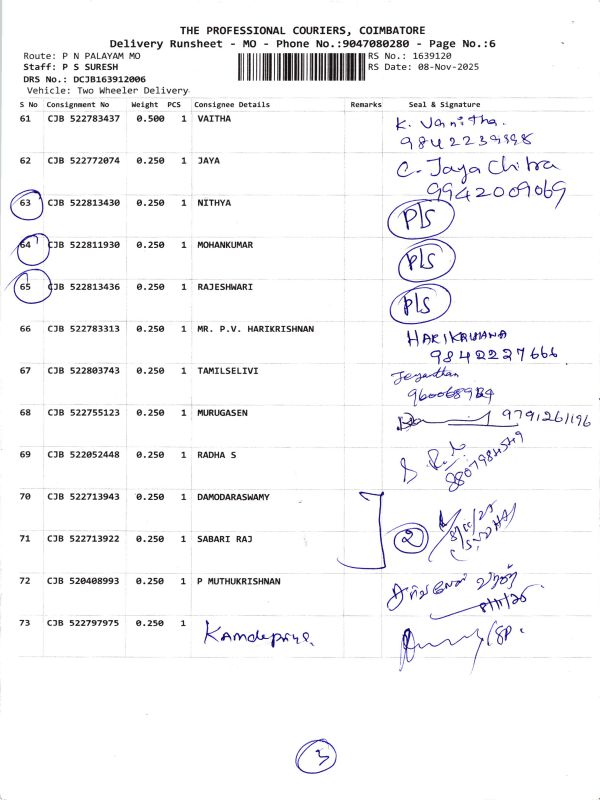 THE PROFESSIONAL COURIERS, COIMBATORE
Delivery Runsheet - MO - Phone No.:9047080280 - Page No.:6
Route: P N PALAYAM MO
RS No.: 1639120
Staff: P S SURESH
RS Date: 08-Nov-2025
DRS No.: DCJB163912006
Vehicle: Two Wheeler Delivery
S No Consignment No Weight PCS Consignee Details Remarks Seal & Signature
61 CJB 522783437 0.500 1 VAITHA K. Vanitha.
62 CJB 522772074 0.250 1 JAYA C. Jaya Chitra
9942009069
63 CJB 522813430 0.250 1 NITHYA P/S
64 CJB 522811930 0.250 1 MOHANKUMAR P/S
65 CJB 522813436 0.250 1 RAJESHWARI P/S
66 CJB 522783313 0.250 1 MR. P.V. HARIKRISHNAN
9842227666
67 CJB 522803743 0.250 1 TAMILSELIVI
68 CJB 522755123 0.250 1 MURUGASEN 9791261196
69 CJB 522052448 0.250 1 RADHA S
70 CJB 522713943 0.250 1 DAMODARASWAMY
2
8/11/25
71 CJB 522713922 0.250 1 SABARI RAJ
72 CJB 520408993 0.250 1 P MUTHUKRISHNAN
8/11/25
73 CJB 522797975 0.250 1
3